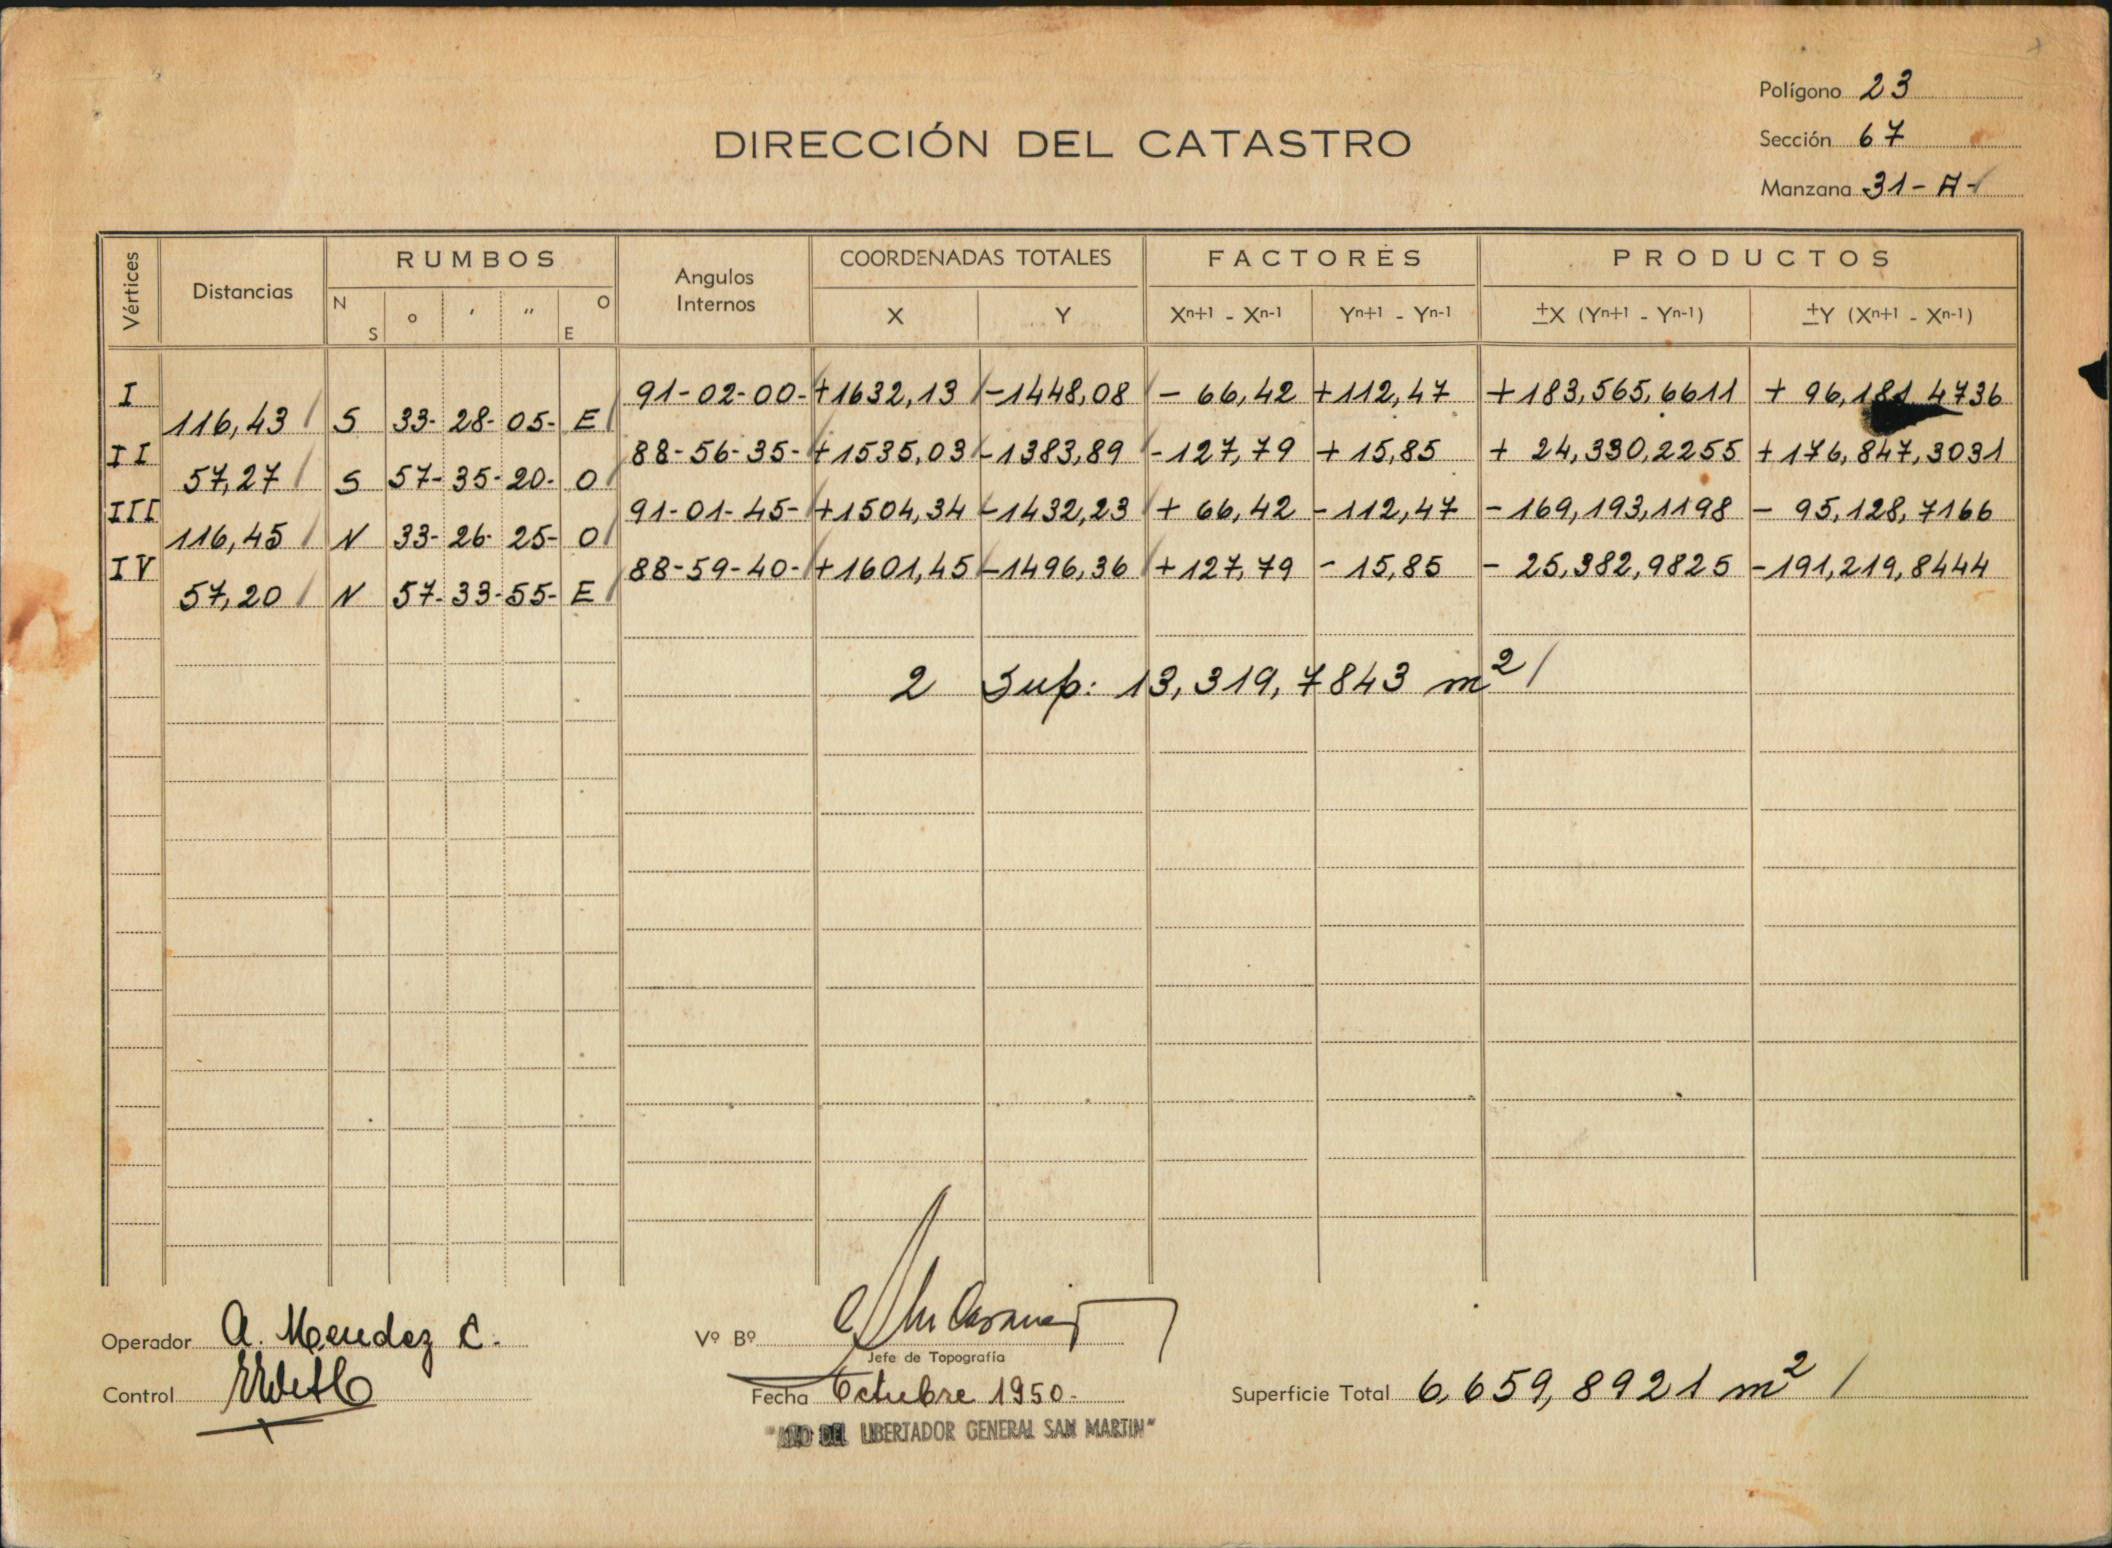 Polígono 23
DIRECCIÓN DEL CATASTRO
Sección 67
Manzana 31-A-
Vértices Distancias RUMBOS Angulos Internos COORDENADAS TOTALES FACTORES PRODUCTOS
N S ° ' " O E X Y Xn+1 - Xn-1 Yn+1 - Yn-1 ±X (Yn+1 - Yn-1) ±Y (Xn+1 - Xn-1)
I 91-02-00- +1632,13 -1448,08 - 66,42 +112,47 +183,565,6611 + 96,181,4736
116,43 S 33- 28- 05- E
II 88-56-35- +1535,03 -1383,89 -127,79 + 15,85 + 24,330,2255 +176,847,3031
57,27 S 57- 35- 20- O
III 91-01-45- +1504,34 -1432,23 + 66,42 -112,47 -169,193,1198 - 95,128,7166
116,45 N 33- 26- 25- O
IV 88-59-40- +1601,45 -1496,36 +127,79 - 15,85 - 25,382,9825 -191,219,8444
57,20 N 57- 33- 55- E
2 Sup: 13,319,7843 m2
Operador A. Mendez C.
Vº Bº
Jefe de Topografía
Control
Fecha Octubre 1950-
Superficie Total 6,659,8921 m2
"AÑO DEL LIBERTADOR GENERAL SAN MARTIN"